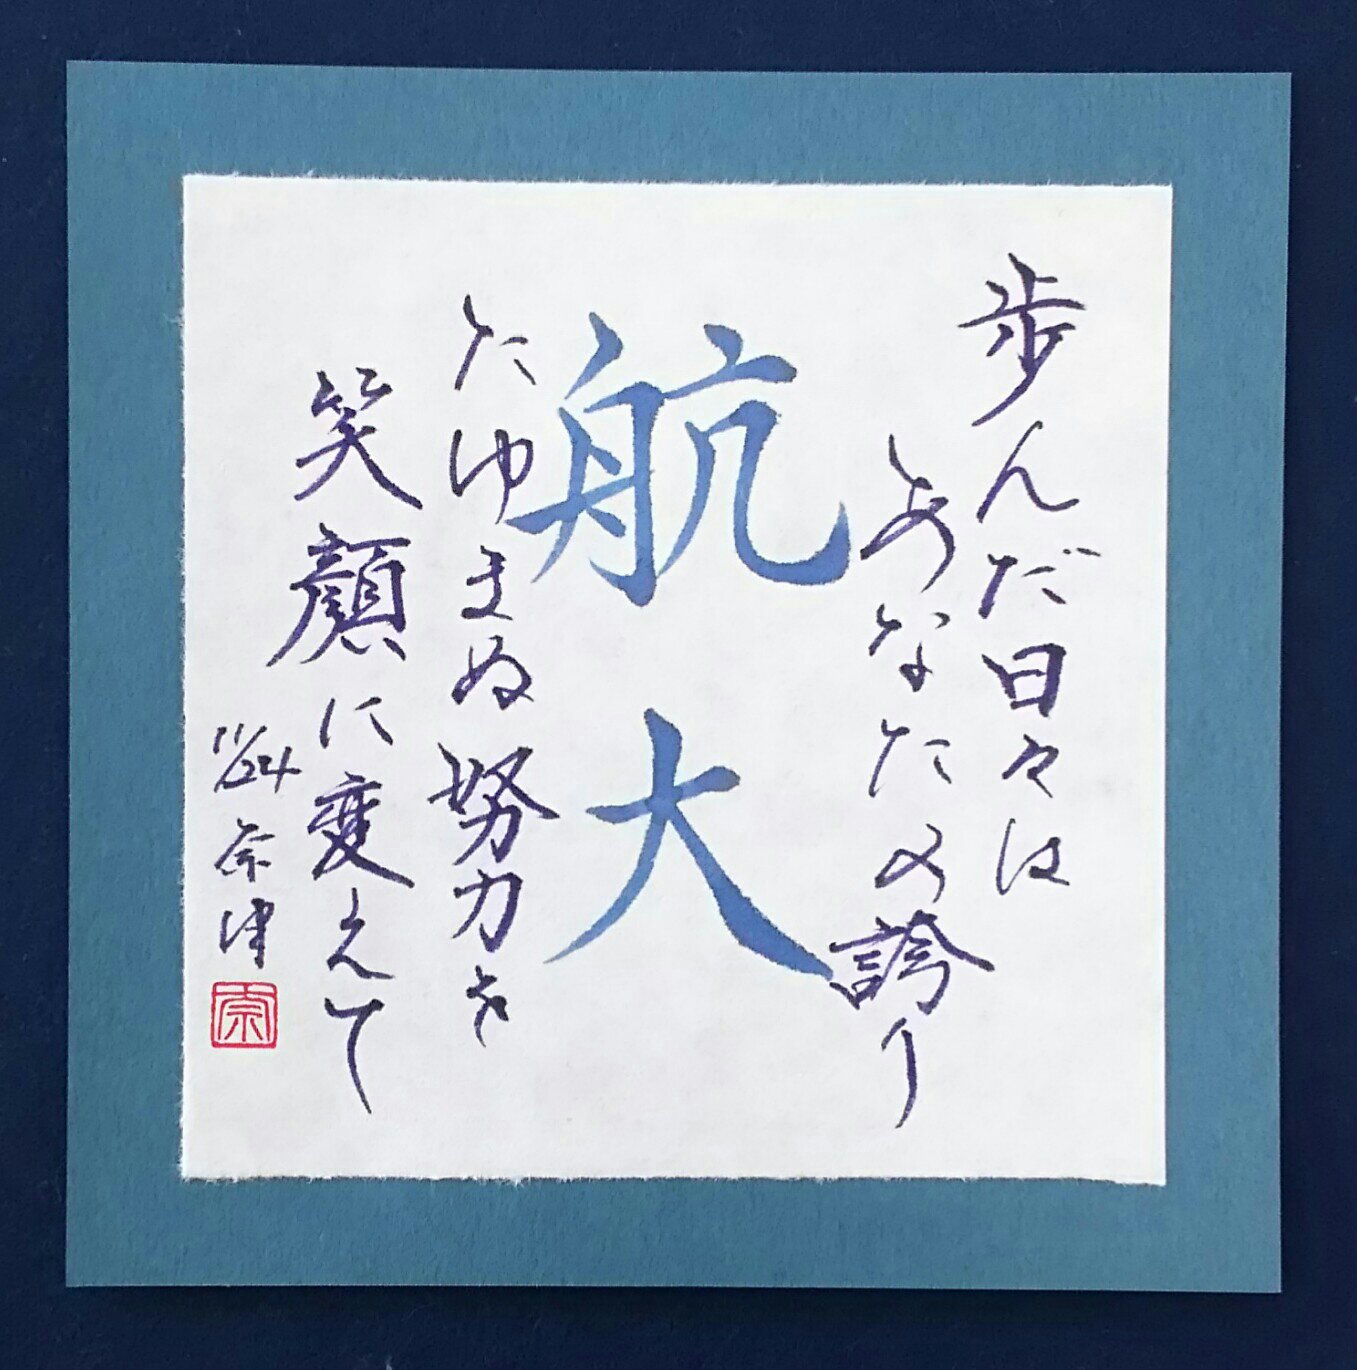 歩んだ日々は
あなたの誇り
航大
たゆまぬ努力を
笑顔に変えて
11/24 奈津
奈